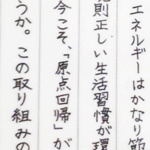 エネルギーはかなり節
規則正しい生活習慣が環
今こそ、「原点回帰」が
うか。この取り組みの